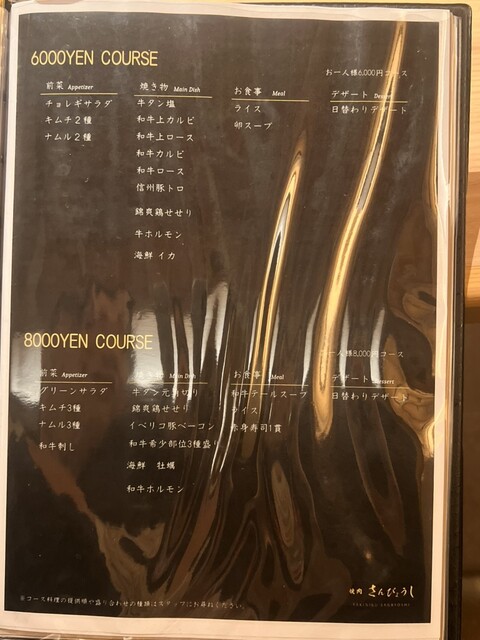 6000YEN COURSE
お一人様6,000円コース
前菜 Appetizer
チョレギサラダ
キムチ2種
ナムル2種
焼き物 Main Dish
牛タン塩
和牛上カルビ
和牛上ロース
和牛カルビ
和牛ロース
信州豚トロ
錦爽鶏せせり
牛ホルモン
海鮮 イカ
お食事 Meal
ライス
卵スープ
デザート Dessert
日替わりデザート
8000YEN COURSE
お一人様8,000円コース
前菜 Appetizer
グリーンサラダ
キムチ3種
ナムル3種
和牛刺し
焼き物 Main Dish
牛タン元角切り
錦爽鶏せせり
イベリコ豚ベーコン
和牛希少部位3種盛り
海鮮 牡蠣
和牛ホルモン
お食事 Meal
和牛テールスープ
ライス
赤身寿司1貫
デザート Dessert
日替わりデザート
焼肉 きんぴょうし
※コース料理の提供順や盛り合わせの種類はスタッフにお尋ねください。